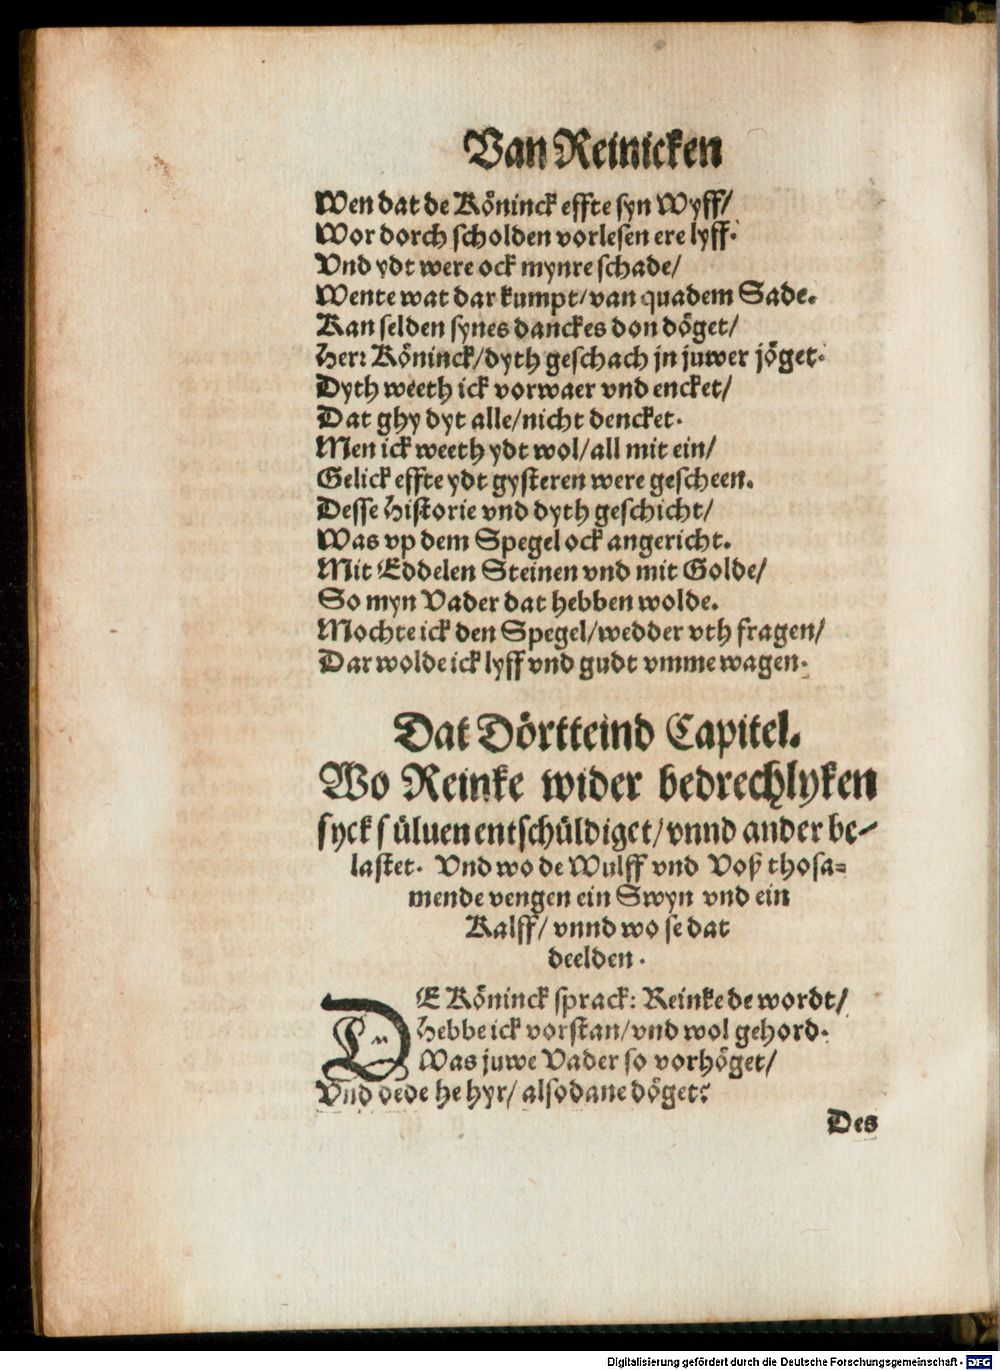 Van Reinicken
Wen dat de Köninck effte syn Wyff/
Wor dorch scholden vorlesen ere lyff.
Vnd ydt were ock mynre schade/
Wente wat dar kumpt/van quadem Sade.
Kan selden synes danckes don döget/
Herr Köninck/dyth geschach jn juwer jöget.
Dyth weeth ick vorwaer vnd encket/
Dat ghy dyt alle/nicht dencket.
Men ick weeth ydt wol/all mit ein/
Gelick effte ydt gysteren were gescheen.
Desse Historie vnd dyth geschicht/
Was vp dem Spegel ock angericht.
Mit Eddelen Steinen vnd mit Golde/
So myn Vader dat hebben wolde.
Mochte ick den Spegel/wedder vth fragen/
Dar wolde ick lyff vnd gudt vmme wagen.
Dat Dörtteind Capitel.
Wo Reinke wider bedrechlyken
syck süluen entschüldiget/vnnd ander be-
lastet. Vnd wo de Wulff vnd Voß thosa-
mende vengen ein Swyn vnd ein
Kalff/vnnd wo se dat
deelden.
DE Köninck sprack: Reinke de wordt/
Hebbe ick vorstan/vnd wol gehord.
Was juwe Vader so vorhöget/
Vnd dede he hyr/alsodane döget:
Des
Digitalisierung gefördert durch die Deutsche Forschungsgemeinschaft - DFG